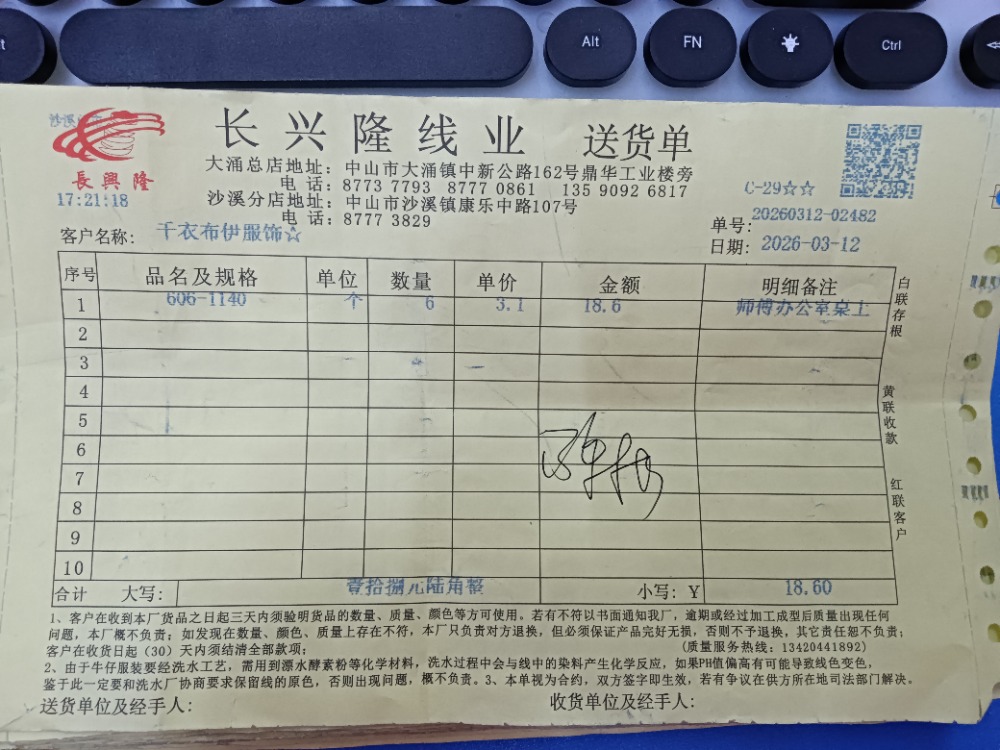 Alt
FN
Ctrl
長興隆
长兴隆线业 送货单
大涌总店地址：中山市大涌镇中新公路162号鼎华工业楼旁
电 话：8773 7793 8777 0861 135 9092 6817
沙溪分店地址：中山市沙溪镇康乐中路107号
电 话：8777 3829
17:21:18
C-29☆☆
单号：20260312-02482
日期：2026-03-12
客户名称：千衣布伊服饰☆
序号 品名及规格 单位 数量 单价 金额 明细备注
1 606-1140 个 6 3.1 18.6 师傅办公室桌上
2
3
4
5
6
7
8
9
10
合计 大写：壹拾捌元陆角整 小写：¥ 18.60
白联存根
黄联收款
红联客户
1、客户在收到本厂货品之日起三天内须验明货品的数量、质量、颜色等方可使用。若有不符以书面通知我厂，逾期或经过加工成型后质量出现任何
问题，本厂概不负责；如发现在数量、颜色、质量上存在不符，本厂只负责对方退换，但必须保证产品完好无损，否则不予退换，其它责任恕不负责；
客户在收货日起（30）天内须结清全部款项； （质量服务热线：13420441892）
2、由于牛仔服装要经洗水工艺，需用到漂水酵素粉等化学材料，洗水过程中会与线中的染料产生化学反应，如果PH值偏高有可能导致线色变色，
鉴于此一定要和洗水厂协商要求保留线的原色，否则出现问题，概不负责。3、本单视为合约，双方签字即生效，若有争议在供方所在地司法部门解决。
送货单位及经手人： 收货单位及经手人：